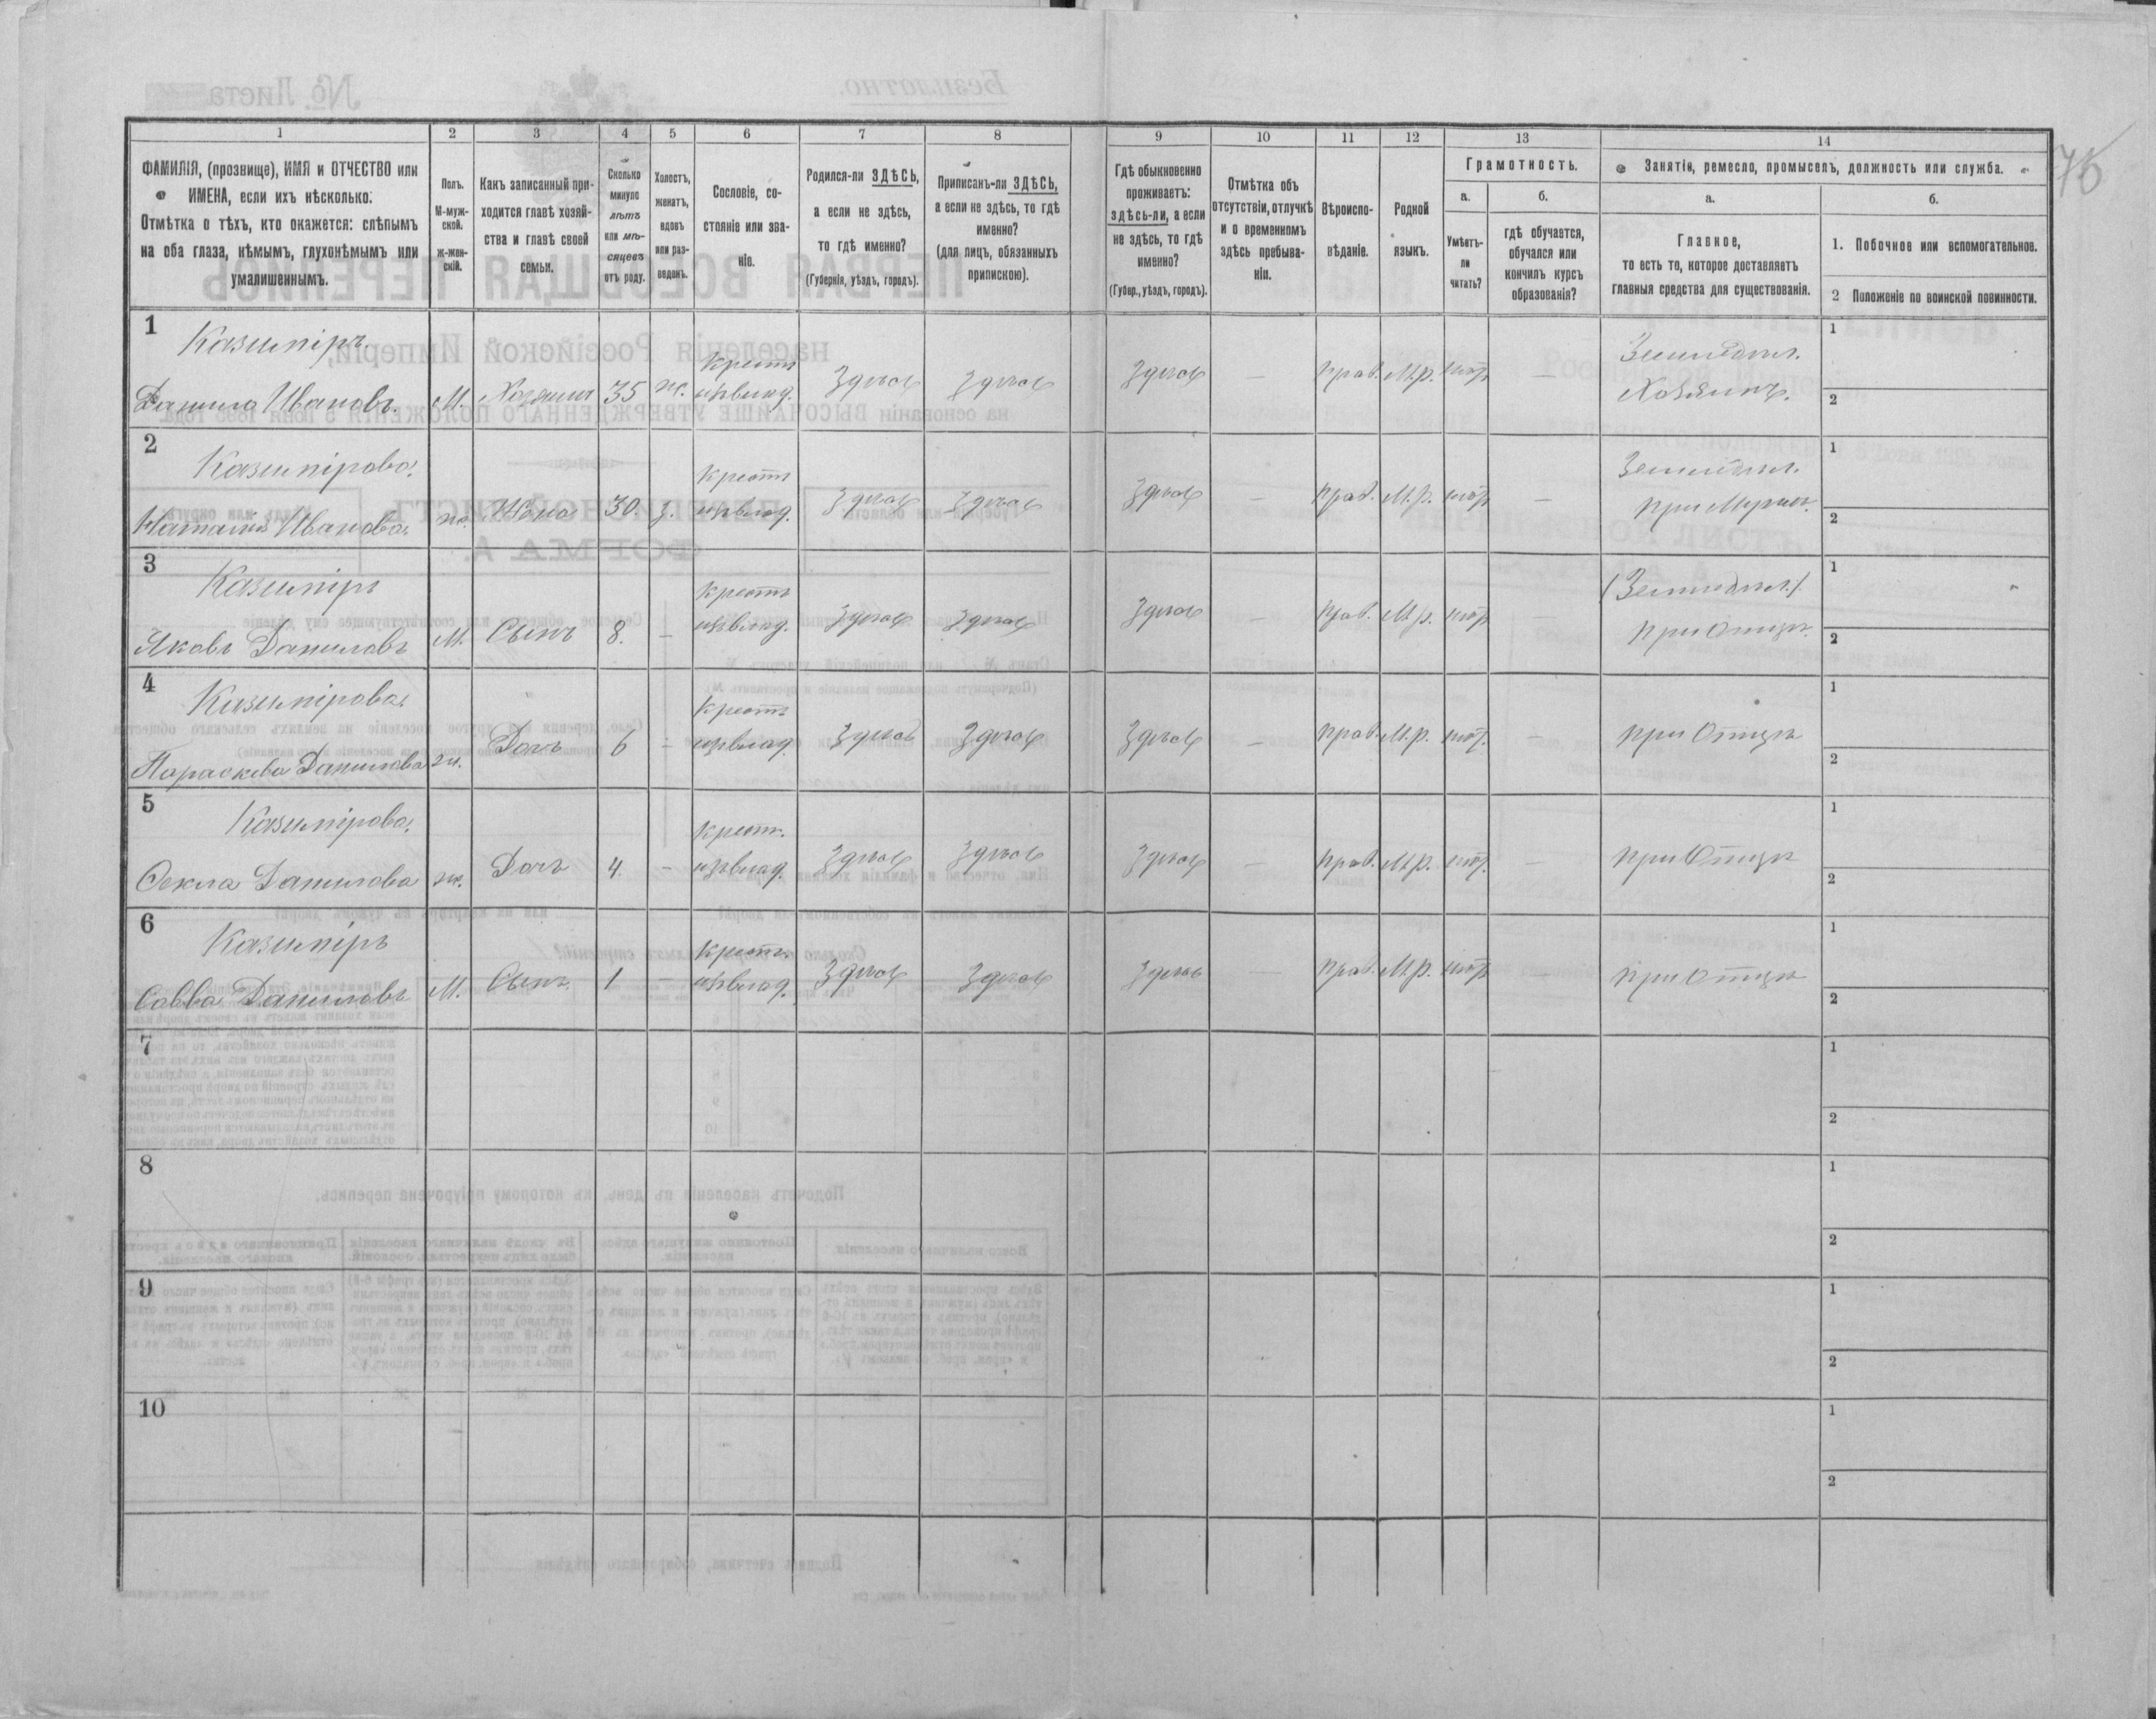 75
1
2
3
4
5
6
7
8
9
10
11
12
13
14
ФАМИЛІЯ, (прозвище), ИМЯ и ОТЧЕСТВО или
ИМЕНА, если ихъ нѣсколько.
Отмѣтка о тѣхъ, кто окажется: слѣпымъ
на оба глаза, нѣмымъ, глухонѣмымъ или
умалишеннымъ.
Полъ.
М-муж-
ской.
ж-жен-
скій.
Какъ записанный при-
ходится главѣ хозяй-
ства и главѣ своей
семьи.
Сколько
минуло
лѣтъ
или мѣ-
сяцевъ
отъ роду.
Холостъ,
женатъ,
вдовъ
или раз-
веденъ.
Сословіе, со-
стояніе или зва-
ніе.
Родился-ли ЗДѢСЬ,
а если не здѣсь,
то гдѣ именно?
(Губернія, уѣздъ, городъ).
Приписанъ-ли ЗДѢСЬ,
а если не здѣсь, то гдѣ
именно?
(для лицъ, обязанныхъ
припискою).
Гдѣ обыкновенно
проживаетъ:
здѣсь-ли, а если
не здѣсь, то гдѣ
именно?
(Губер., уѣздъ, городъ).
Отмѣтка объ
отсутствіи, отлучкѣ
и о временномъ
здѣсь пребыва-
ніи.
Вѣроиспо-
вѣданіе.
Родной
языкъ.
Грамотность.
а.
Умѣетъ-
ли
читать?
б.
гдѣ обучается,
обучался или
кончилъ курсъ
образованія?
Занятія, ремесло, промыселъ, должность или служба.
а.
Главное,
то есть то, которое доставляетъ
главныя средства для существованія.
б.
1. Побочное или вспомогательное.
2 Положеніе по воинской повинности.
1
Казимиръ
Данило Ивановъ.
М.
Хозяинъ
35
ж.
Крест.
изъ влад.
Здѣсь
Здѣсь
Здѣсь
—
Прав.
М.р.
нѣт
—
Земледѣл.
Хозяинъ.
1
2
2
Казимірова
Наталія Иванова
ж.
Жена
30.
з.
Крест
изъ влад.
Здѣсь
Здѣсь
Здѣсь
—
Прав.
М.р.
нѣт
—
Земледѣл.
при Мужѣ.
1
2
3
Казиміръ
Яковъ Даниловъ
М.
Сынъ
8.
—
Крест
изъ влад.
Здѣсь
Здѣсь
Здѣсь
—
Прав.
М.р.
нѣт
(Земледѣл.)
при Отцѣ.
1
2
4
Казимірова
Параскева Данилова
ж.
Дочь
6
Крест
изъ влад
Здѣсь
Здѣсь
Здѣсь
—
Прав.
М.р.
нѣт.
—
при Отцѣ
1
2
5
Казимірова
Оекла Данилова
ж.
Дочь
4.
—
Крест.
изъ влад.
Здѣсь
Здѣсь
Здѣсь
—
Прав.
М.р.
нѣт.
—
при Отцѣ
1
2
6
Казиміръ
Савва Даниловъ
М.
Сынъ
1
—
Крест.
изъ влад.
Здѣсь
Здѣсь
Здѣсь
—
Прав.
М.р.
нѣт
—
при Отцѣ
1
2
7
1
2
8
1
2
9
1
2
10
1
2